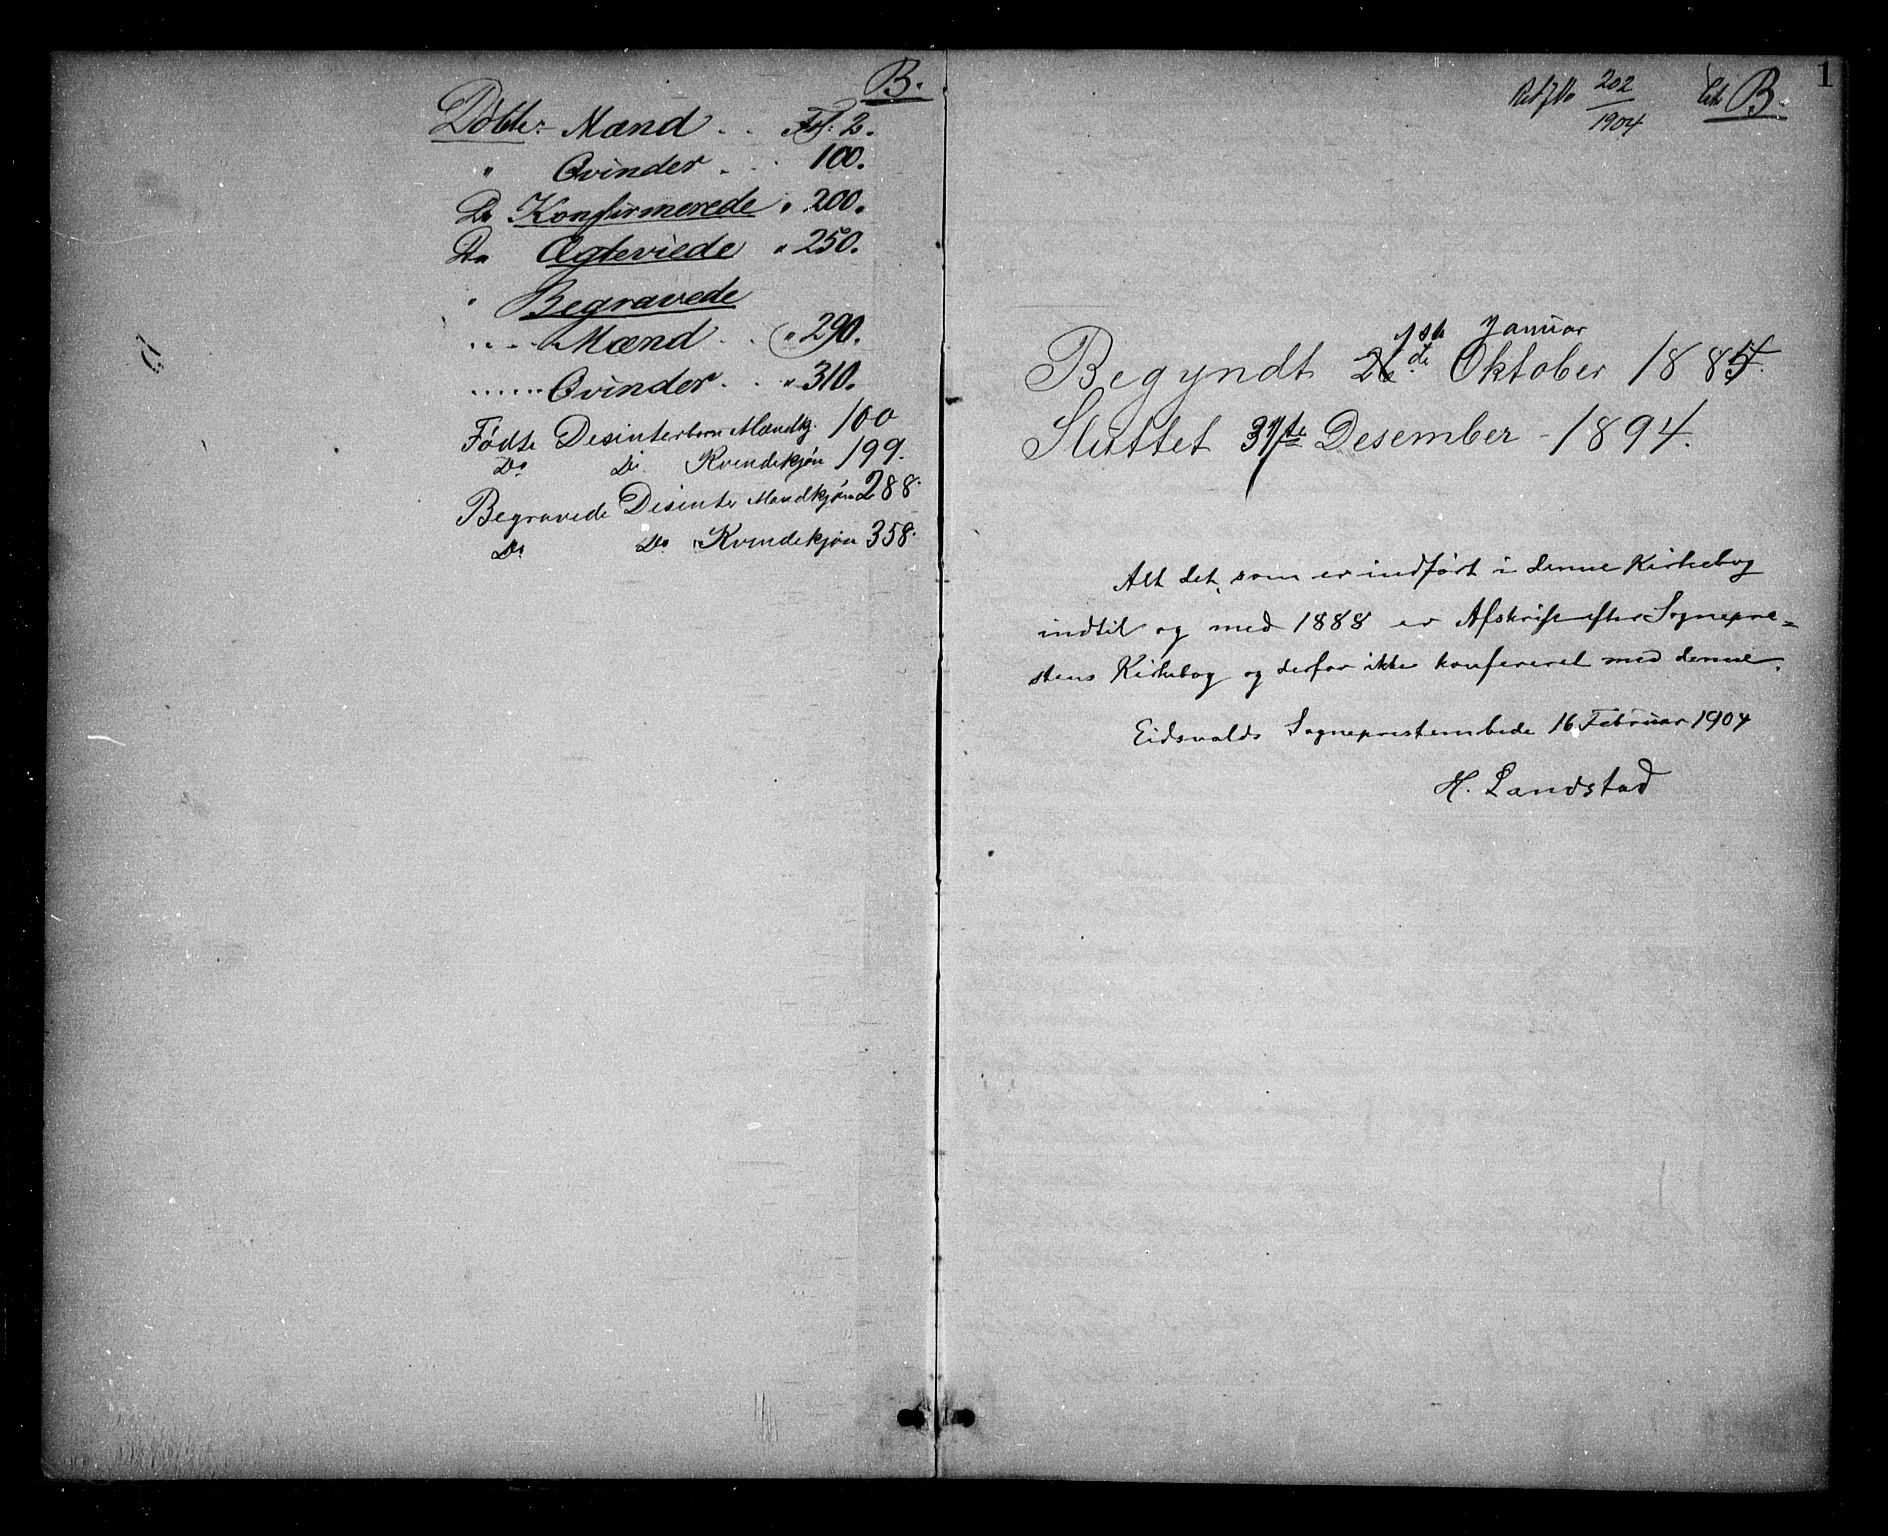 B.
Døbte: Mænd . . Fol: 2.
" Qvinder . . 100.
Do Konfirmerede " 200.
Do Ægteviede " 250.
" Begravede
.... Mænd . . " 290.
...... Qvinder . . " 310.
Fødte Desinterbørn Mandkj. 100
Do Do Kvindekjøn 199.
Begravede Disinter Mandkjøn 288.
Do Do Kvindekjøn 358.
1
202/1904 B.
1ste Januar
Begyndt de Oktober 188
Sluttet 31te Desember - 1894.
Alt det, som er indført i denne Kirkebog
indtil og med 1888 er Afskrift efter Sognepre=
stens Kirkebog og derfor ikke konfereret med denne.
Eidsvolds Sogneprestembede 16 Februar 1904
H. Landstad